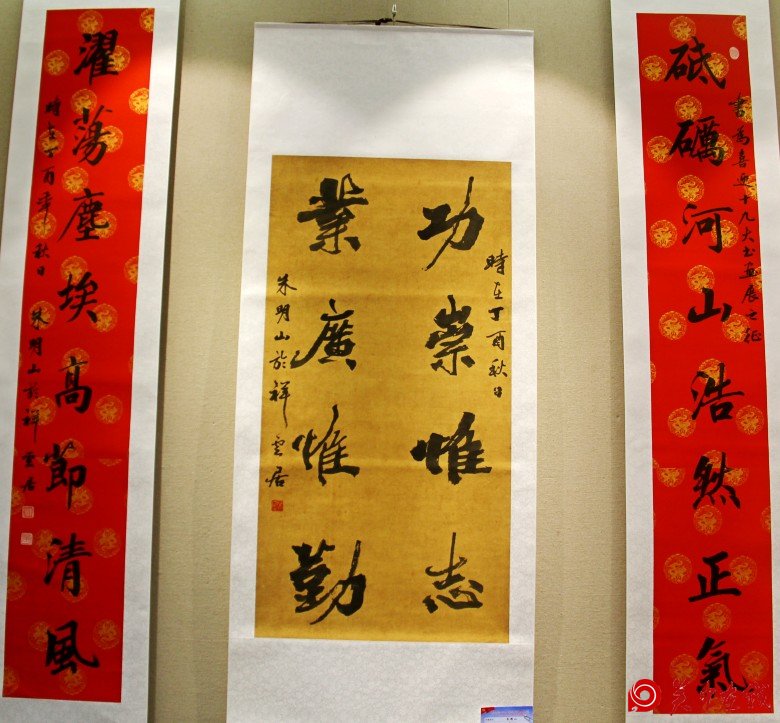 砥礪河山浩然正氣
書為喜迎十九大書畫展之征
功崇惟志
時在丁酉秋日
業廣惟勤
朱明山於祥雲居
濯蕩塵埃高節清風
時在丁酉年秋日朱明山於祥雲居